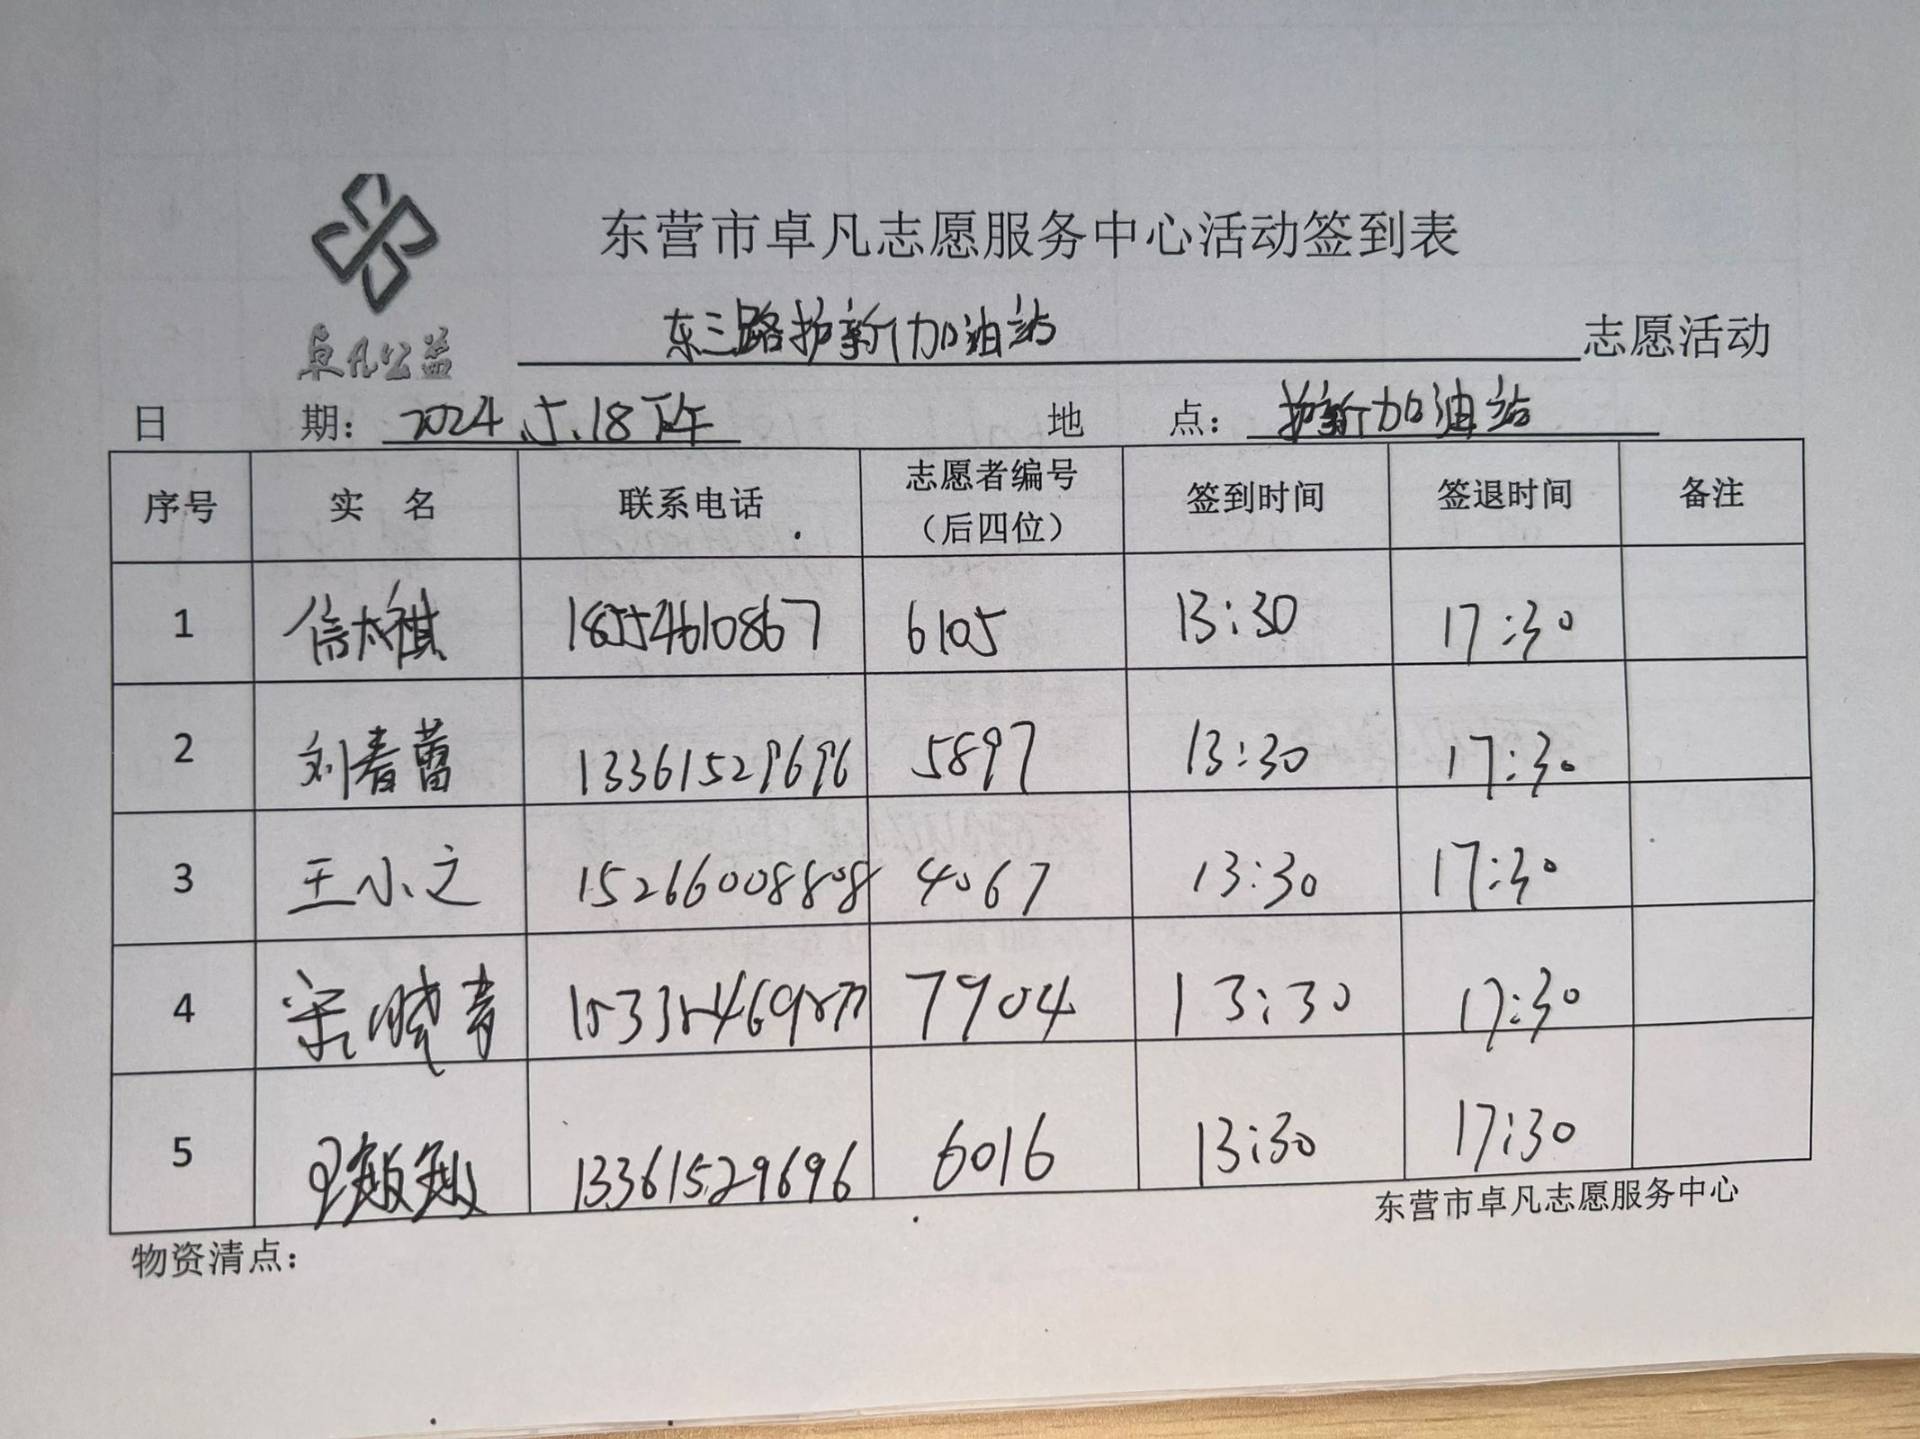 东营市卓凡志愿服务中心活动签到表
卓凡公益
东三路护新加油站 志愿活动
日期：2024.5.18下午 地点：护新加油站
序号 实名 联系电话 志愿者编号（后四位） 签到时间 签退时间 备注
1 信太祺 18554610867 6105 13:30 17:30
2 刘春蕾 13361529696 5897 13:30 17:30
3 王小之 15266008808 4067 13:30 17:30
4 宋晓青 7904 13:30 17:30
5 13361529696 6016 13:30 17:30
东营市卓凡志愿服务中心
物资清点：